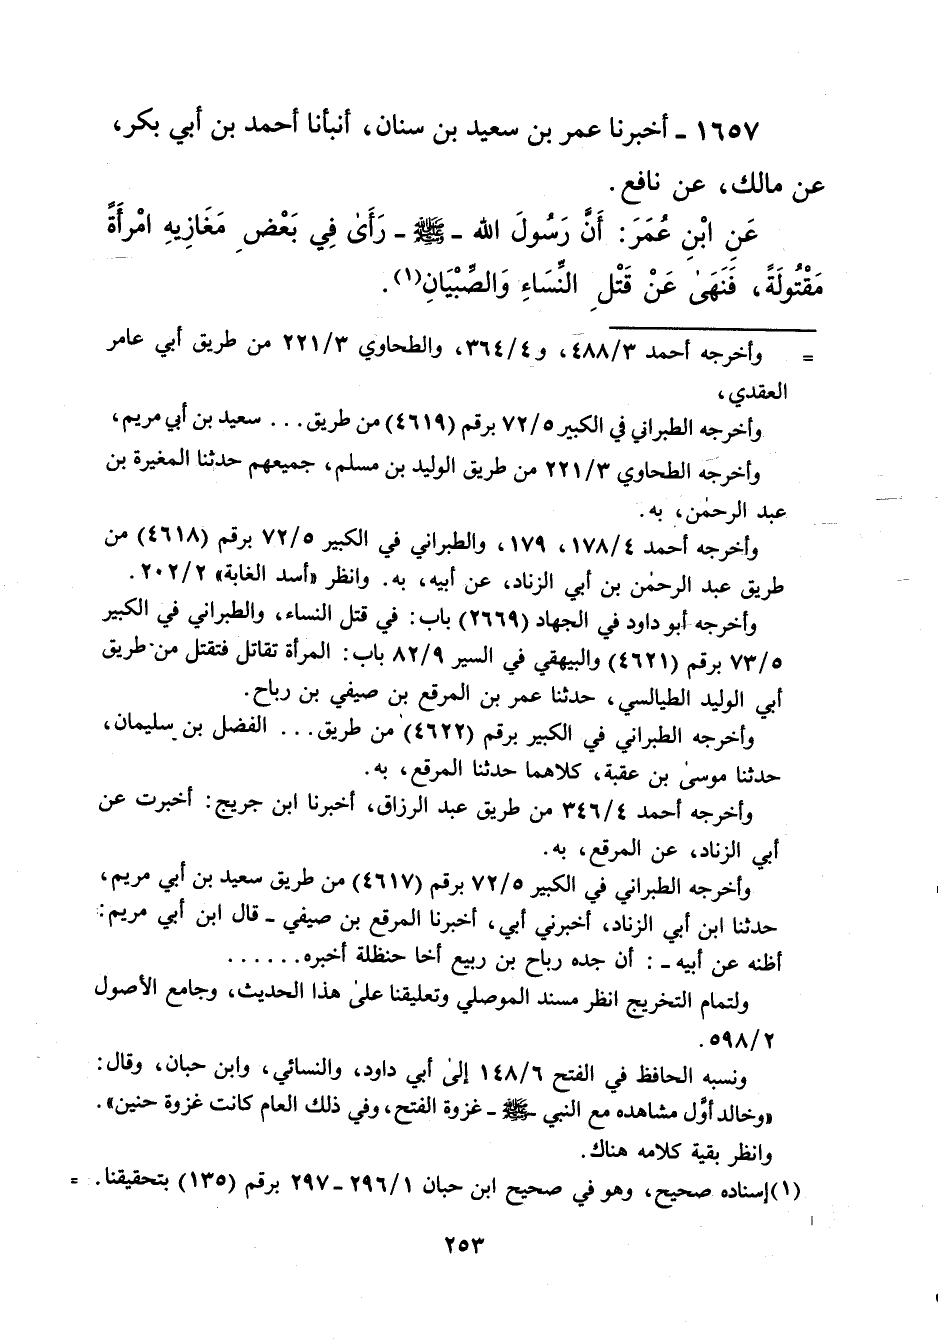 ١٦٥٧ - أخبرنا عمر بن سعيد بن سنان، أنبأنا أحمد بن أبي بكر،
عن مالك، عن نافع.
عَنِ ابْنِ عُمَرَ: أَنَّ رَسُولَ الله - ﷺ - رَأَىٰ فِي بَعْضِ مَغَازِيهِ امْرأَةً
مَقْتُولَةً، فَنَهَىٰ عَنْ قَتْلِ النِّسَاءِ وَالصِّبْيَانِ(١).
= وأخرجه أحمد ٤٨٨/٣، و٣٦٤/٤، والطحاوي ٢٢١/٣ من طريق أبي عامر
العقدي،
وأخرجه الطبراني في الكبير ٧٢/٥ برقم (٤٦١٩) من طريق... سعيد بن أبي مريم،
وأخرجه الطحاوي ٢٢١/٣ من طريق الوليد بن مسلم، جميعهم حدثنا المغيرة بن
عبد الرحمٰن، به.
وأخرجه أحمد ١٧٨/٤، ١٧٩، والطبراني في الكبير ٧٢/٥ برقم (٤٦١٨) من
طريق عبد الرحمٰن بن أبي الزناد، عن أبيه، به. وانظر «أسد الغابة» ٢٠٢/٢.
وأخرجه أبو داود في الجهاد (٢٦٦٩) باب: في قتل النساء، والطبراني في الكبير
٧٣/٥ برقم (٤٦٢١) والبيهقي في السير ٨٢/٩ باب: المرأة تقاتل فتقتل من طريق
أبي الوليد الطيالسي، حدثنا عمر بن المرقع بن صيفي بن رباح.
وأخرجه الطبراني في الكبير برقم (٤٦٢٢) من طريق... الفضل بن سليمان،
حدثنا موسىٰ بن عقبة، كلاهما حدثنا المرقع، به.
وأخرجه أحمد ٣٤٦/٤ من طريق عبد الرزاق، أخبرنا ابن جريج: أخبرت عن
أبي الزناد، عن المرقع، به.
وأخرجه الطبراني في الكبير ٧٢/٥ برقم (٤٦١٧) من طريق سعيد بن أبي مريم،
حدثنا ابن أبي الزناد، أخبرني أبي، أخبرنا المرقع بن صيفي - قال ابن أبي مريم:
أظنه عن أبيه -: أن جده رباح بن ربيع أخا حنظلة أخبره......
ولتمام التخريج انظر مسند الموصلي وتعليقنا علىٰ هذا الحديث، وجامع الأصول
٥٩٨/٢.
ونسبه الحافظ في الفتح ١٤٨/٦ إلىٰ أبي داود، والنسائي، وابن حبان، وقال:
«وخالد أوَّل مشاهده مع النبي - ﷺ - غزوة الفتح، وفي ذلك العام كانت غزوة حنين».
وانظر بقية كلامه هناك.
(١) إسناده صحيح، وهو في صحيح ابن حبان ٢٩٦/١ - ٢٩٧ برقم (١٣٥) بتحقيقنا. =
٢٥٣